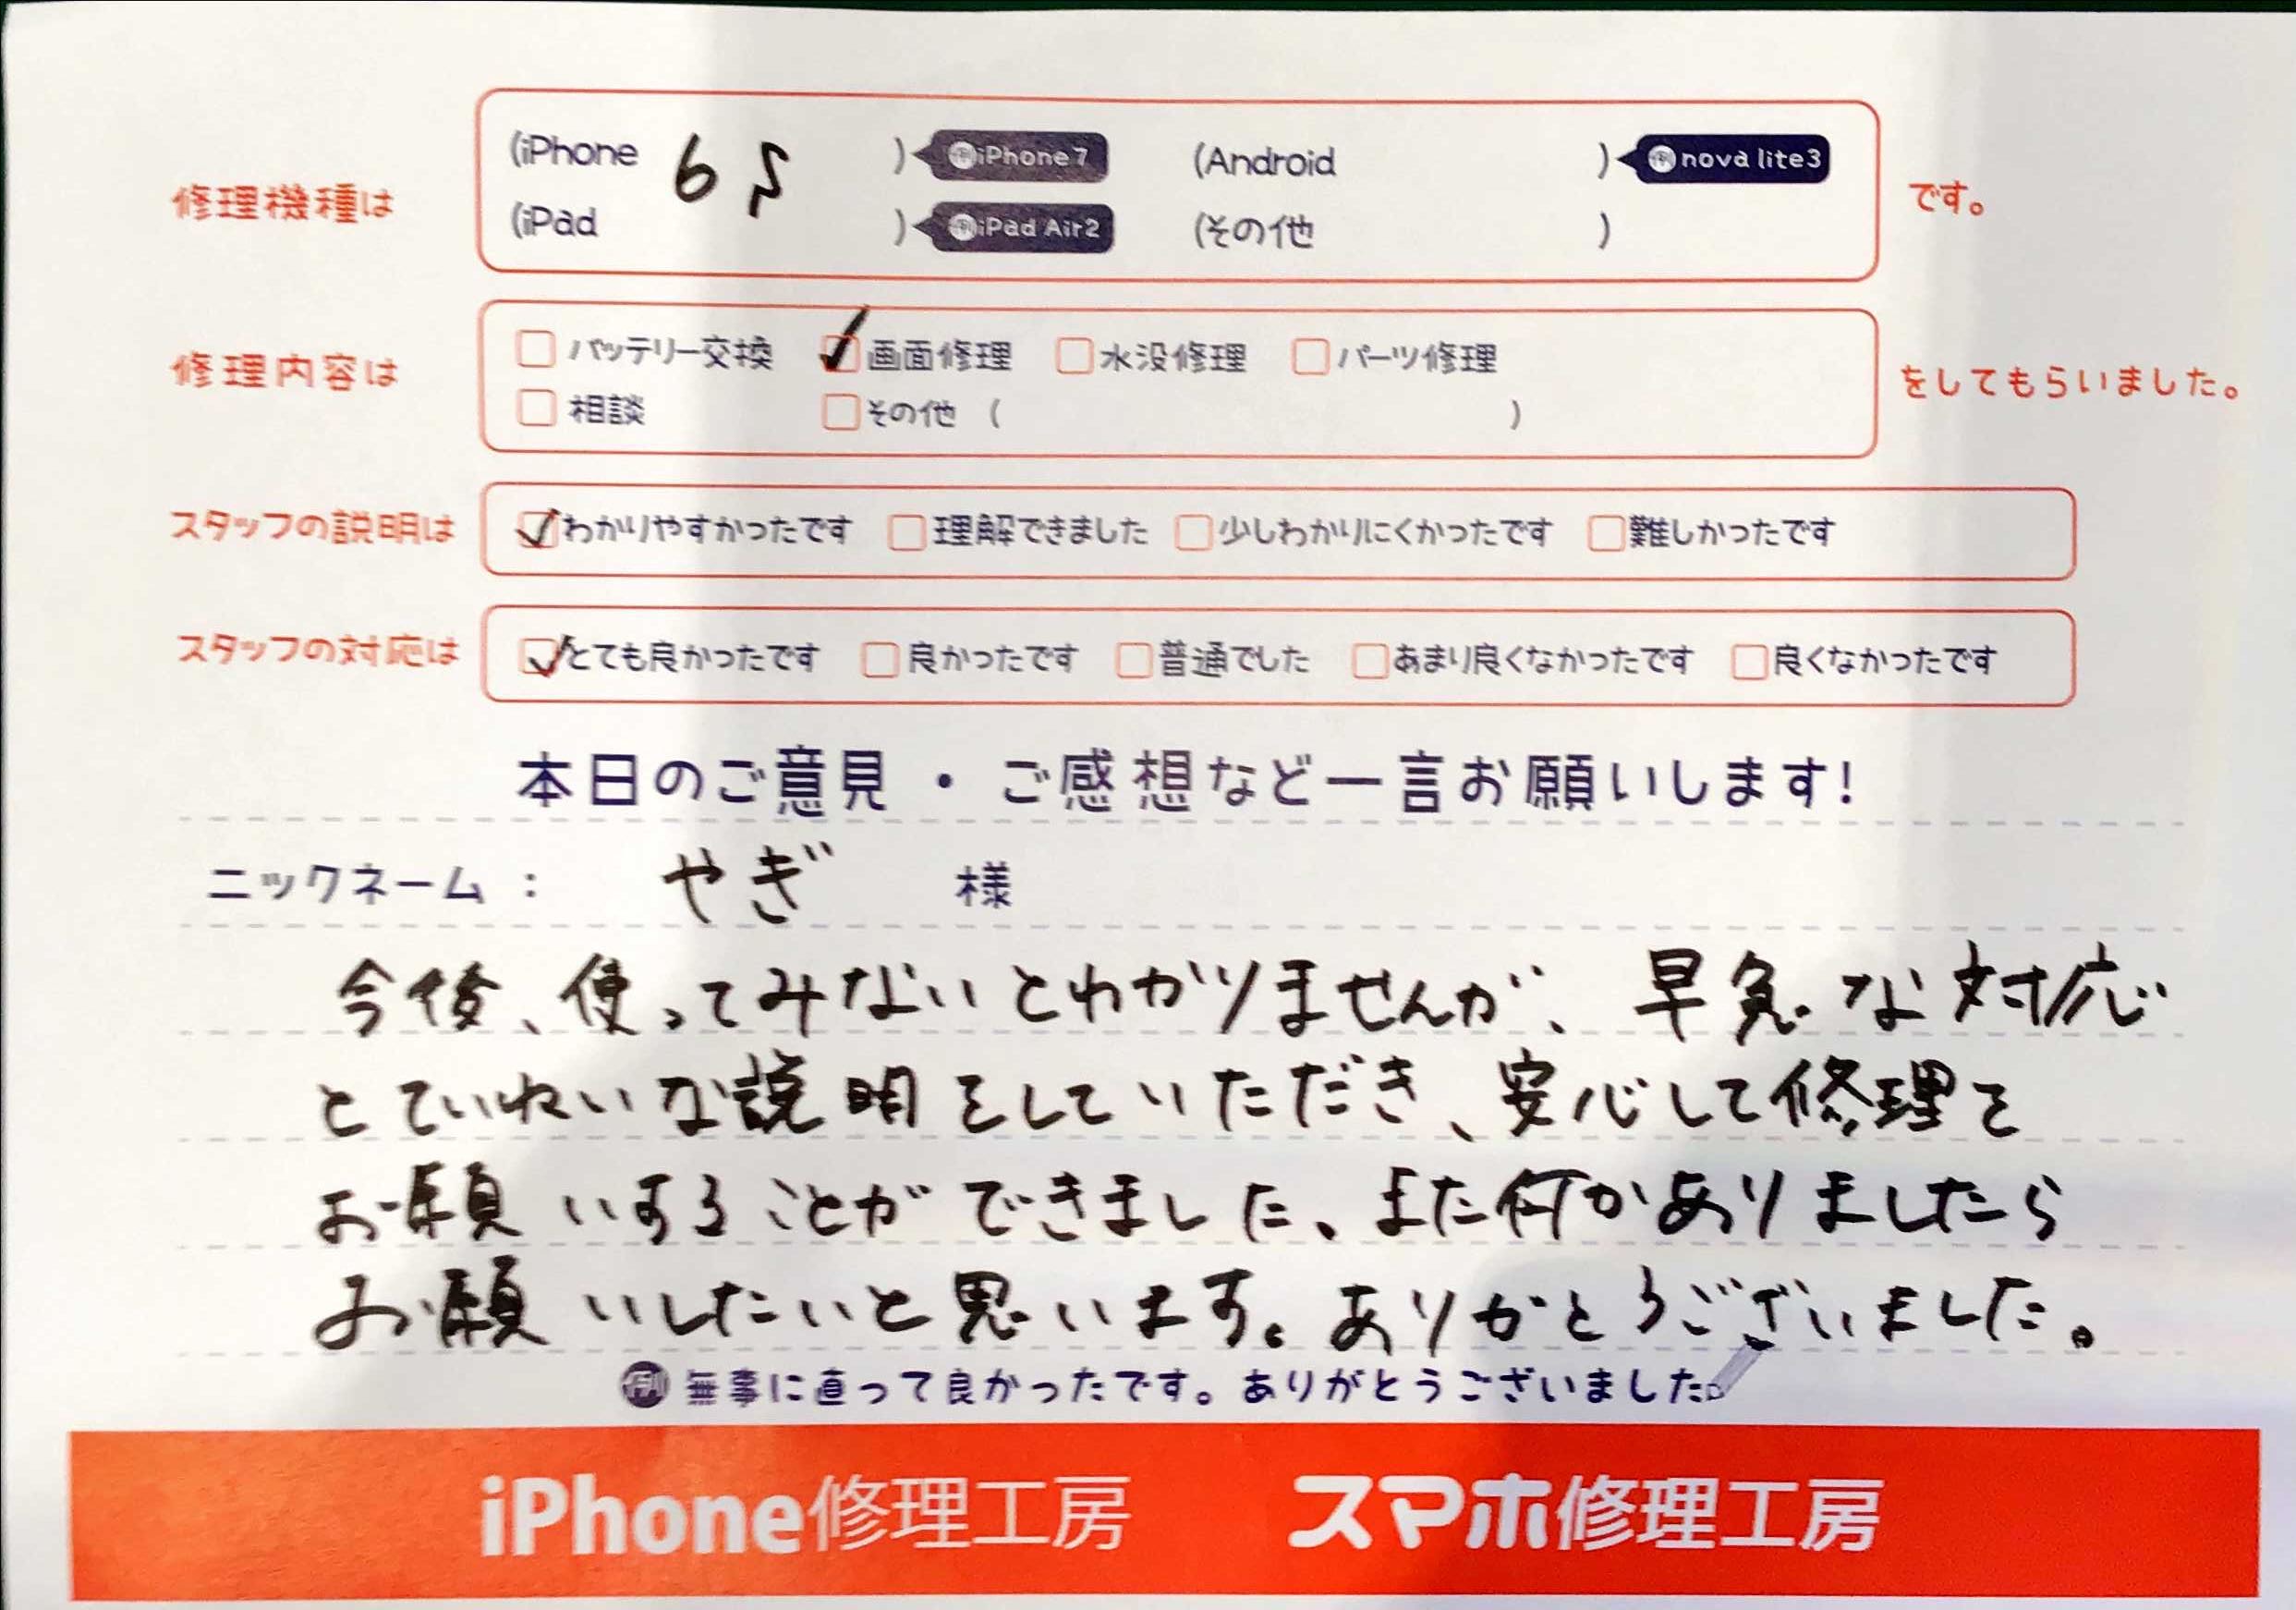 修理機種は (iPhone 6s ) 例iPhone7 (Android ) 例nova lite3 です。
(iPad ) 例iPad Air2 (その他 )
修理内容は □バッテリー交換 ☑画面修理 □水没修理 □パーツ修理 をしてもらいました。
□相談 □その他 ( )
スタッフの説明は ☑わかりやすかったです □理解できました □少しわかりにくかったです □難しかったです
スタッフの対応は ☑とても良かったです □良かったです □普通でした □あまり良くなかったです □良くなかったです
本日のご意見・ご感想など一言お願いします!
ニックネーム : やぎ 様
今後、使ってみないとわかりませんが、早急な対応
とていねいな説明をしていただき、安心して修理を
お願いすることができました、また何かありましたら
お願いしたいと思います。ありがとうございました。
例 無事に直って良かったです。ありがとうございました。
iPhone修理工房 スマホ修理工房